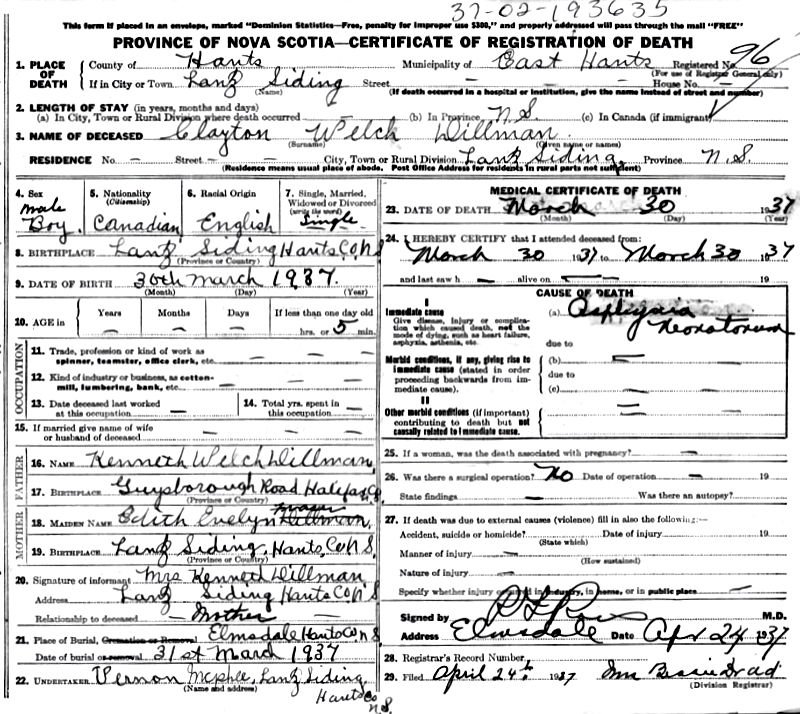 37-02-193635
This form if placed in an envelope, marked "Dominion Statistics—Free, penalty for improper use $300," and properly addressed will pass through the mail "FREE"
PROVINCE OF NOVA SCOTIA—CERTIFICATE OF REGISTRATION OF DEATH
1. PLACE OF DEATH County of Hants Municipality of East Hants Registered No. 96
(For use of Registrar General only)
If in City or Town Lantz Siding Street — — House No. —
(Name) (If death occurred in a hospital or institution, give the name instead of street and number)
2. LENGTH OF STAY (in years, months and days)
(a) In City, Town or Rural Division where death occurred — (b) In Province N.S. (c) In Canada (if immigrant)
3. NAME OF DECEASED Clayton Welch Dillman
(Surname) (Given name or names)
RESIDENCE No. — Street — City, Town or Rural Division Lantz Siding, Province N.S.
(Residence means usual place of abode. Post Office Address for residents in rural parts not sufficient)
4. Sex Male Boy.
5. Nationality (Citizenship) Canadian
6. Racial Origin English
7. Single, Married, Widowed or Divorced (write the word) Single
8. BIRTHPLACE Lantz Siding Hants Co N S
(Province or Country)
9. DATE OF BIRTH 30th March 1937.
(Month) (Day) (Year)
10. AGE in Years — Months — Days — If less than one day old
hrs. or 5 min.
OCCUPATION
11. Trade, profession or kind of work as spinner, teamster, office clerk, etc. — —
12. Kind of industry or business, as cotton-mill, lumbering, bank, etc. — — —
13. Date deceased last worked at this occupation —
14. Total yrs. spent in this occupation —
15. If married give name of wife or husband of deceased — —
FATHER
16. NAME Kenneth Welch Dillman,
17. BIRTHPLACE Guysborough Road Halifax Co
(Province or Country)
MOTHER
18. MAIDEN NAME Edith Evelyn Dillman,
19. BIRTHPLACE Lantz Siding, Hants Co N S.
(Province or Country)
20. Signature of informant Mrs Kenneth Dillman,
Address Lantz Siding Hants Co N S
Relationship to deceased — Mother
21. Place of Burial, Cremation or Removal Elmsdale Hants Co N S
Date of burial or removal 31st March 1937
22. UNDERTAKER Vernon McPhee, Lantz Siding
(Name and address) Hants Co
N S.
MEDICAL CERTIFICATE OF DEATH
23. DATE OF DEATH March 30 1937
(Month) (Day) (Year)
24. I HEREBY CERTIFY that I attended deceased from:
March 30 1937 to March 30 1937
and last saw h — alive on — 19
CAUSE OF DEATH
I
Immediate cause
Give disease, injury or complication which caused death, not the mode of dying, such as heart failure, asphyxia, asthenia, etc.
(a) Asphyxia Neonatorum
due to
Morbid conditions, if any, giving rise to immediate cause (stated in order proceeding backwards from immediate cause).
(b) —
due to
(c) —
II
Other morbid conditions (if important) contributing to death but not causally related to immediate cause.
25. If a woman, was the death associated with pregnancy? —
26. Was there a surgical operation? No Date of operation — 19
State findings — Was there an autopsy?
27. If death was due to external causes (violence) fill in also the following:—
Accident, suicide or homicide? Date of injury 19
(State which)
Manner of injury —
(How sustained)
Nature of injury —
Specify whether injury occurred in industry, in home, or in public place —
Signed by M.D.
Address Elmsdale Date Apr 24 1937
28. Registrar's Record Number
29. Filed April 24th 1937
(Division Registrar)